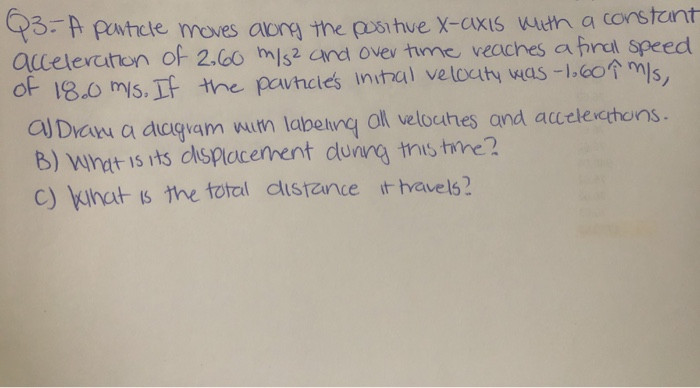 Q3:- A particle moves along the positive X-axis with a constant
acceleration of 2.60 m/s² and over time reaches a final speed
of 18.0 m/s. If the particle's initial velocity was -1.60 î m/s,
a) Draw a diagram with labeling all velocities and accelerations.
B) What is its displacement during this time?
C) What is the total distance it travels?